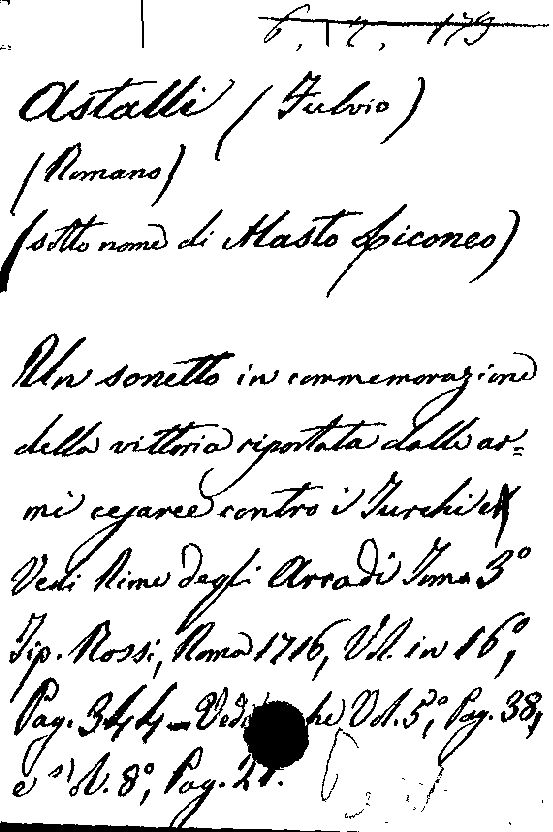 6. 12. 179
Astalli (Fulvio)
(Romano)
(sotto nome di Alasto Liconeo)
Un sonetto in commemorazione
della vittoria riportata dalle ar=
mi cesaree contro i Turchi
Vedi Rime degli Arcadi Tomo 3º
Tip. Rossi, Roma 1716, Vol. in 16º,
Pag. 344 - Vedi anche Vol. 5º, Pag. 38,
e Vol. 8º, Pag. 21.